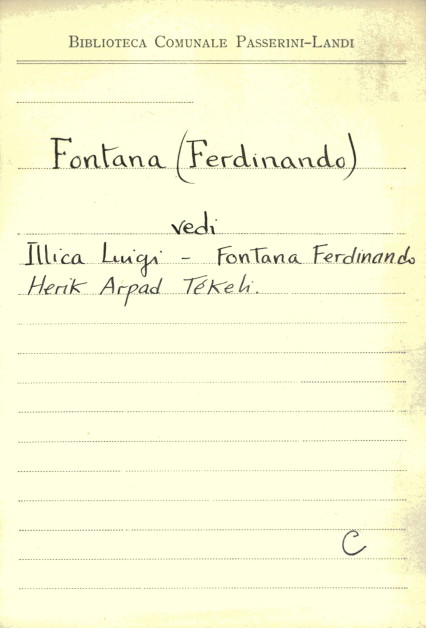 Biblioteca Comunale Passerini-Landi
Fontana (Ferdinando)
vedi
Illica Luigi - Fontana Ferdinando
Herik Arpad Tékeli.
C